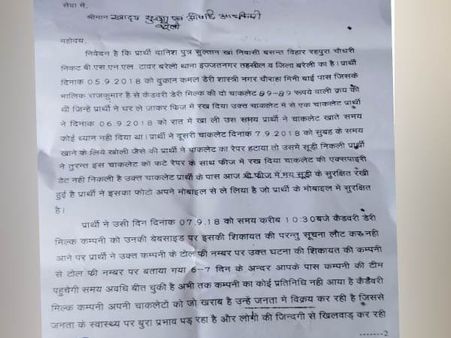 सेवा में,
श्रीमान खाद्य सुरक्षा एवं औषधि अधिकारी
बरेली
महोदय,
निवेदन है कि प्रार्थी दानिश पुत्र सुल्तान खां निवासी बसन्त विहार रहपुरा चौधरी
निकट बी.एस.एन.एल. टावर बरेली थाना इज्जतनगर तहसील व जिला बरेली का है। प्रार्थी
दिनाक 05.9.2018 को दुकान कमल डेरी शास्त्री नगर चौराहा मिनी बाई पास जिसके
मालिक राजकुमार है से कैडवरी डेरी मिल्क की दो चाकलेट 89-89 रूपये वाली क्रय की
थी जिन्हें प्रार्थी ने घर ले जाकर फ्रिज में रख दिया उक्त चाकलेट में से एक चाकलेट प्रार्थी
ने दिनाक 06.9.2018 को रात में खा ली उस समय प्रार्थी ने चाकलेट खाते समय
कोई ध्यान नही दिया था। प्रार्थी ने दूसरी चाकलेट दिनाक 7.9.2018 को सुबह के समय
खाने के लिये खोली जैसे की प्रार्थी ने चाकलेट का रेपर हटाया तो उसमे सूडी निकली प्रार्थी
ने तुरन्त इस चाकलेट को फटे रेपर के साथ फ्रीज में रख दिया चाकलेट की एक्सपाइरी
डेट नही निकली है उक्त चाकलेट प्रार्थी के पास आज भी फ्रीज में मय सूडी के सुरक्षित रखी
हुई है प्रार्थी ने इसका फोटो अपने मोबाइल से ले लिया है जो प्रार्थी के मोबाइल में सुरक्षित
है।
प्रार्थी ने उसी दिन दिनाक 07.9.18 को समय करीब 10:30 बजे कैडवरी डेरी
मिल्क कम्पनी को उनकी बेबसाइड पर इसकी शिकायत की परन्तु सूचना लौट कर नही
आने पर प्रार्थी ने उक्त कम्पनी के टोल फ्री नम्बर पर उक्त घटना की शिकायत की कम्पनी
से टोल फ्री नम्बर पर बताया गया 6-7 दिन के अन्दर आपके पास कम्पनी की टीम
पहुचेगी समय अवधि बीत चुकी है अभी तक कम्पनी का कोई प्रतिनिधि नही आया है कैडैवरी
मिल्क कम्पनी अपनी चाकलेटो को जो खराब है उन्हे जनता मे विक्रय कर रही है जिससे
जनता के स्वास्थ्य पर बुरा प्रभाव पड़ रहा है और लोगो की जिन्दगी से खिलवाड़ कर रही
-------2